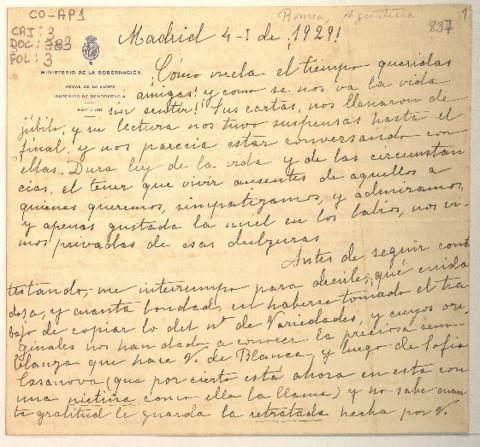 CO-AP1
Romea, Agustina
1
CAJ: 3
DOC: 783
837
FOL: 3
Madrid 4-I de ¡1929!
MINISTERIO DE LA GOBERNACIÓN
VOCAL DE LA JUNTA
SUPERIOR DE BENEFICENCIA
PARTICULAR
¡Como vuela el tiempo queridas
amigas! ¡y como se nos va la vida
sin sentir! Sus cartas, nos llenaron de
júbilo, y su lectura nos tuvo suspensas hasta el
final, y nos parecia estar conversando con
ellas. Dura ley de la vida y de las circunstan
cias, el tener que vivir ausentes de aquellos a
quienes queremos, simpatizamos, y admiramos,
y apenas gustada la miel en los labios, nos vi-
mos privadas de esas dulzuras
Antes de seguir con
testando, me interrumpo para decirles, que cuida
dosa, y cuanta bondad, en haberse tomado el tra
bajo de copiar lo del nº de Variedades, y cuyos ori
ginales nos han dado a conocer la preciosa sem-
blanza que hace V. de Blanca y luego de Sofia
Casanova (que por cierto está ahora en esta con
una nietina como ella la llama) y no sabe cuan
ta gratitud le guarda la retratada hecha por V.